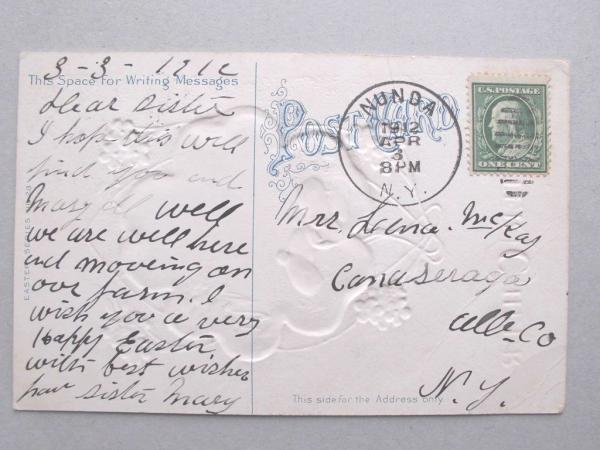 3-3-1912
This Space For Writing Messages
Dear Sister
I hope this will
find you and
Mary all well
we are well here
and mooveing on
our farm. I
wish you a very
Happy Easter
with best wishes
from sister Mary
POST CARD
NUNDA
1912
APR
3
8 PM
N.Y.
U.S. POSTAGE
ONE CENT
Mrs. Lena. McKay
Canaseraga
Alle-Co
N.Y.
EASTER SERIES
This side for the Address only.